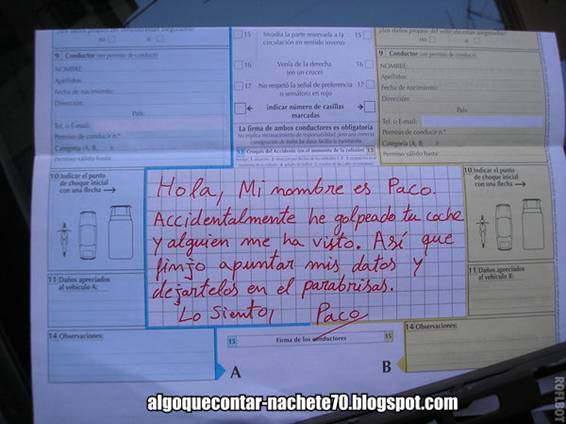 15 Invadía la parte reservada a la 15
circulación en sentido inverso
16 Venía de la derecha 16
(en un cruce)
17 No respetó la señal de preferencia 17
o semáforo en rojo
indicar número de casillas
marcadas
La firma de ambos conductores es obligatoria
9 Conductor (ver permiso de conducir)
NOMBRE:
Apellidos:
Fecha de nacimiento:
Dirección:
País:
Tel. o E-mail:
Permiso de conducir n.º:
Categoría (A, B,
Permiso válido hasta:
9 Conductor (ver permiso de conducir)
NOMBRE:
Apellidos:
Fecha de nacimiento:
Dirección:
País:
Tel. o E-mail:
Permiso de conducir n.º:
Categoría (A, B,
Permiso válido hasta:
10 Indicar el punto
de choque inicial
con una flecha
10 Indicar el punto
de choque inicial
con una flecha
Hola, Mi nombre es Paco.
Accidentalmente he golpeado tu coche
y alguien me ha visto. Así que
finjo apuntar mis datos y
dejartelos en el parabrisas.
Lo siento, Paco
11 Daños apreciados
al vehículo A:
11 Daños apreciados
al vehículo B:
14 Observaciones:
15 Firma de los conductores 15
14 Observaciones:
A
B
algoquecontar-nachete70.blogspot.com
ROFLBOT